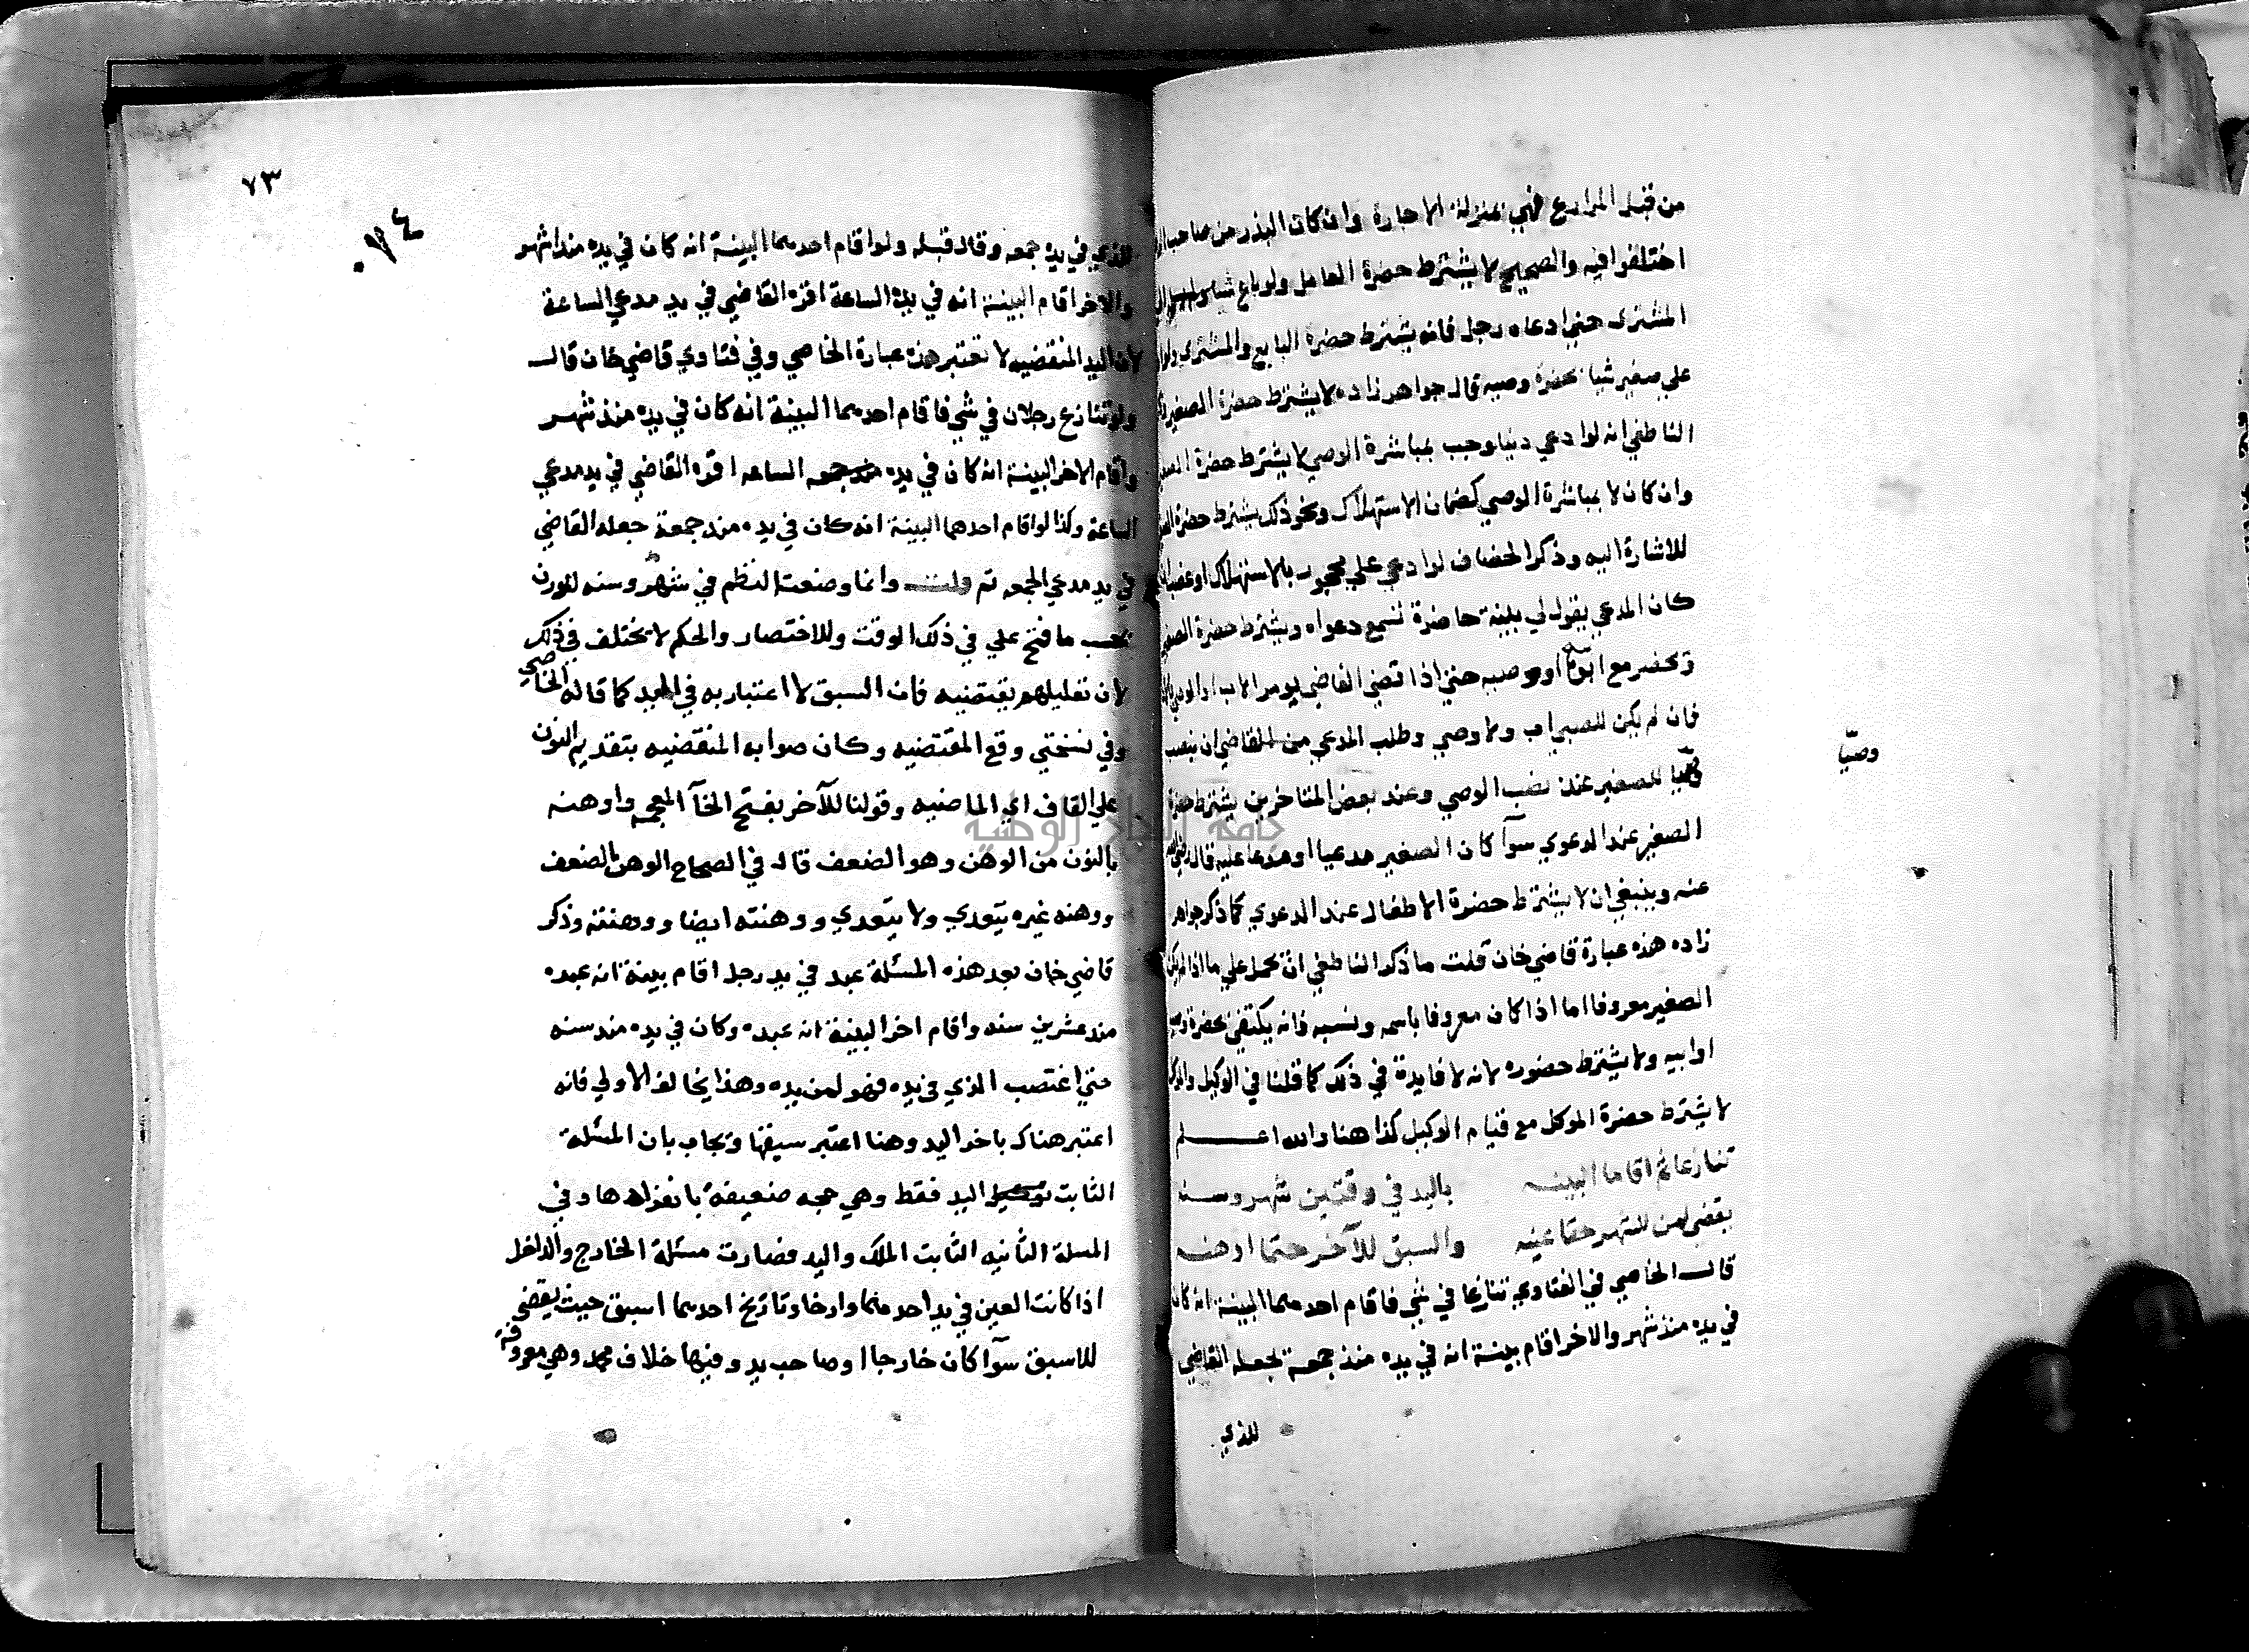 من قبل المزارع فهي بمنزلة الاجارة وان كان البذر من صاحب
اختلفوا فيه والصحيح لا يشترط حضرة العامل ولو باع شيا
المشتري حتي ادعاه رجل فانه يشترط حضرة البايع والمشتري
علي صغير شيا بحضرة وصيه قال جواهر زاده لا يشترط حضرة الصغير
الناطفي انه لو ادعي دينا وجب بمباشرة الوصي لا يشترط حضرة
وان كان لا بمباشرة الوصي كضمان الاستهلاك ونحو ذلك يشترط حضرة
للاشارة اليه وذكر الخصاف لو ادعي علي محجور بالاستهلاك او
كان المدعي يقول لي بينة حاضرة تسمع دعواه ويشترط حضرة الصغير
وتحضر مع ابوه او وصيه حتي اذا قضي القاضي يومر الاب او الوصي
فان لم يكن للصبي اب ولا وصي وطلب المدعي من القاضي ان ينصب
وصيّا
للصغير عند نصب الوصي وعند بعض المتاخرين يشترط حضرة
الصغير عند الدعوي سوآ كان الصغير مدعيا او مدعا عليه قال
عنه وينبغي ان لا يشترط حضرة الاطفال عند الدعوي كما ذكر جواهر
زاده هذه عبارة قاضي خان قلت ما ذكر الناطفي ان يحمل علي ما اذا لم يكن
الصغير معروفا اما اذا كان معروفا باسمه ونسبه فانه يكتفي بحضرة
او ابيه ولا يشترط حضوره لانه لا فايدة في ذلك كما قلنا في الوكيل
لا يشترط حضرة الموكل مع قيام الوكيل كذا هنا والله اعلم
تنازعا ثم اقاما البينه باليد في وقتين شهر وسنه
يقضي لمن للشهر حقا عينه والسبق للآخر حتما اوهنه
قال الخاصي في الفتاوي تنازعا في شي فاقام احدهما البينة انه كان
في يده منذ شهر والاخر اقام بينة انه في يده منذ جمعة يجعله القاضي
للذي
٧٣
للذي في يده جمعه وقال قبله ولو اقام احدهما البينة انه كان في يده منذ اشهر
والاخر اقام البينة انه في يده الساعة اقره القاضي في يد مدعي الساعة
لان اليد المنقضيه لا تعتبر هذه عبارة الخاصي وفي فتاوي قاضي خان قال
ولو تنازع رجلان في شي فاقام احدهما البينة انه كان في يده منذ شهر
واقام الاخر البينة انه كان في يده منذ جمعه الساعه اقره القاضي في يد مدعي
الساعة وكذا لو اقام احدهما البينة انه كان في يده منذ جمعة جعله القاضي
في يد مدعي الجمعه ثم قلت وانما وضعت النظم في شهر وسنه للوزن
بحسب ما فتح علي في ذلك الوقت وللاختصار والحكم لا يختلف في ذلك
لان تعليلهم يقتضيه فان السبق لا اعتبار به في اليد كما قاله الخاصي
وفي نسختي وقع المقتضيه وكان صوابه المنقضيه بتقديم النون
علي القاف اي الماضيه وقولنا للآخر بفتح الخآ المعجمه واوهنه
بالنون من الوهن وهو الضعف قال في الصحاح الوهن الضعف
ووهنه غيره يتعدي ولا يتعدي ووهنته ايضا ووهنته وذكر
قاضي خان بعد هذه المسئلة عبد في يد رجل اقام بينة انه عبده
منذ عشرين سنه واقام اخر البينة انه عبده وكان في يده منذ سنه
حتي اغتصب الذي في يده فهو لمن يده وهذا يخالف الاولي فانه
اعتبر هناك باخر اليد وهنا اعتبر سبقها ويجاب بان المسئلة
الثابت اليد فقط وهي حجه ضعيفة بانفرادها وفي
المسلة الثانيه الثابت الملك واليد فصارت مسئلة الخارج والداخل
اذا كانت العين في يد احدهما وارخا وتاريخ احدهما اسبق حيث يقضي
للاسبق سوآ كان خارجا او صاحب يد وفيها خلاف محمد وهي معروفة